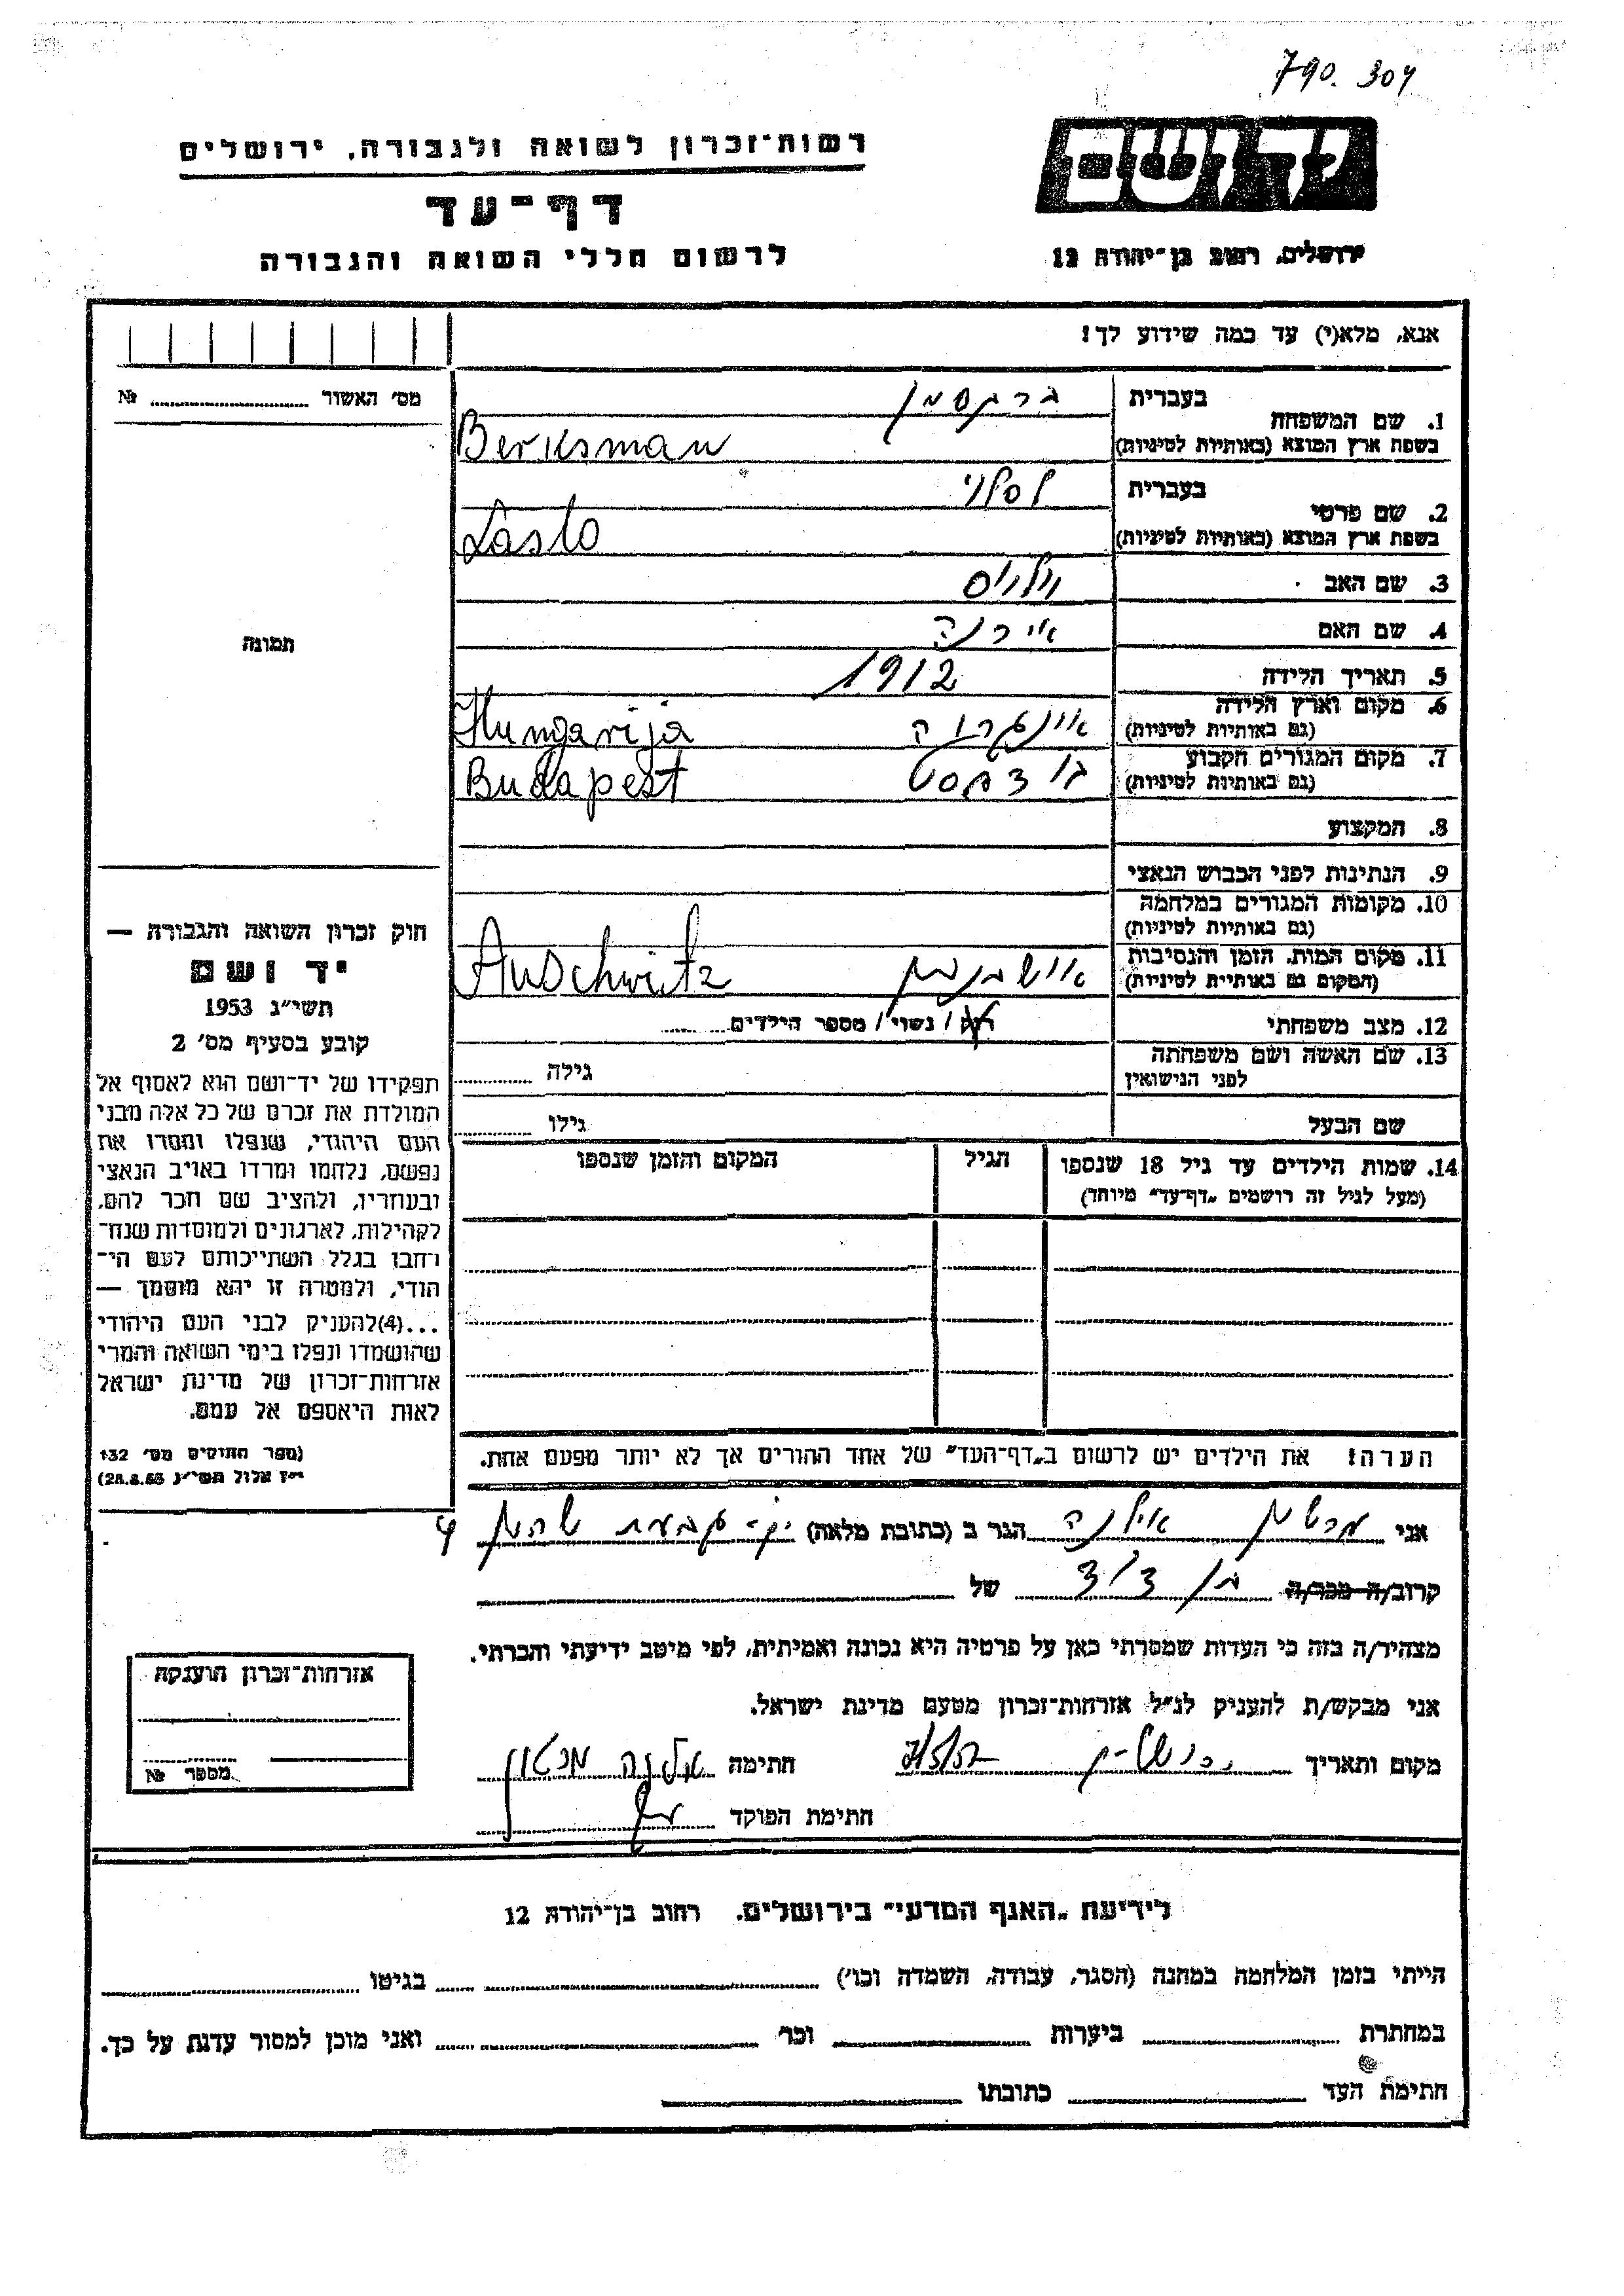 790.304
רשות־זכרון לשואה ולגבורה, ירושלים
יד ושם
דף־עד
לרשום חללי השואה והגבורה
ירושלים, רחוב בן־יהודה 12
אנא, מלא(י) עד כמה שידוע לך!
מס׳ האשור №
1. שם המשפחה
בעברית ברקסמן
בשפת ארץ המוצא (באותיות לטיניות) Berksman
2. שם פרטי
בעברית לסלו
בשפת ארץ המוצא (באותיות לטיניות) Laslo
3. שם האב
4. שם האם אירנה
תמונה
5. תאריך הלידה 1912
6. מקום וארץ הלידה
(גם באותיות לטיניות) Hungarija
7. מקום המגורים הקבוע
(גם באותיות לטיניות) בודפסט Budapest
8. המקצוע
9. הנתינות לפני הכבוש הנאצי
10. מקומות המגורים במלחמה
(גם באותיות לטיניות)
11. מקום המות, הזמן והנסיבות
(המקום גם באותיות לטיניות) Auschwitz
12. מצב משפחתי רוק / נשוי / מספר הילדים
13. שם האשה ושם משפחתה
לפני הנישואין גילה
שם הבעל גילו
14. שמות הילדים עד גיל 18 שנספו
(מעל לגיל זה רושמים „דף־עד״ מיוחד)
הגיל
המקום והזמן שנספו
חוק זכרון השואה והגבורה —
יד ושם
תשי״ג 1953
קובע בסעיף מס׳ 2
תפקידו של יד־ושם הוא לאסוף אל
המולדת את זכרם של כל אלה מבני
העם היהודי, שנפלו ומסרו את
נפשם, נלחמו ומרדו באויב הנאצי
ובעוזריו, ולהציב שם וזכר להם,
לקהילות, לארגונים ולמוסדות שנח־
רחבו בגלל השתייכותם לעם הי־
הודי, ולמטרה זו יהא מוסמך —
...(4)להעניק לבני העם היהודי
שהושמדו ונפלו בימי השואה והמרי
אזרחות־זכרון של מדינת ישראל
לאות היאספם אל עמם.
(ספר החוקים מס׳ 132
י״ז אלול תשי״ג 28.8.53)
הערה! את הילדים יש לרשום ב„דף־העד״ של אחד ההורים אך לא יותר מפעם אחת.
אני אילנה הגר ב (כתובת מלאה)
קרוב/ה מכר/ה בן דוד של
מצהיר/ה בזה כי העדות שמסרתי כאן על פרטיה היא נכונה ואמיתית, לפי מיטב ידיעתי והכרתי.
אני מבקש/ת להעניק לנ״ל אזרחות־זכרון מטעם מדינת ישראל.
מקום ותאריך חתימה
חתימת הפוקד
אזרחות־זכרון הוענקה
מספר №
לידיעת „האגף המדעי״ בירושלים. רחוב בן־יהודה 12
הייתי בזמן המלחמה במחנה (הסגר, עבודה, השמדה וכו׳) בגיטו
במחתרת ביערות וכו׳ ואני מוכן למסור עדות על כך.
חתימת העד כתובתו